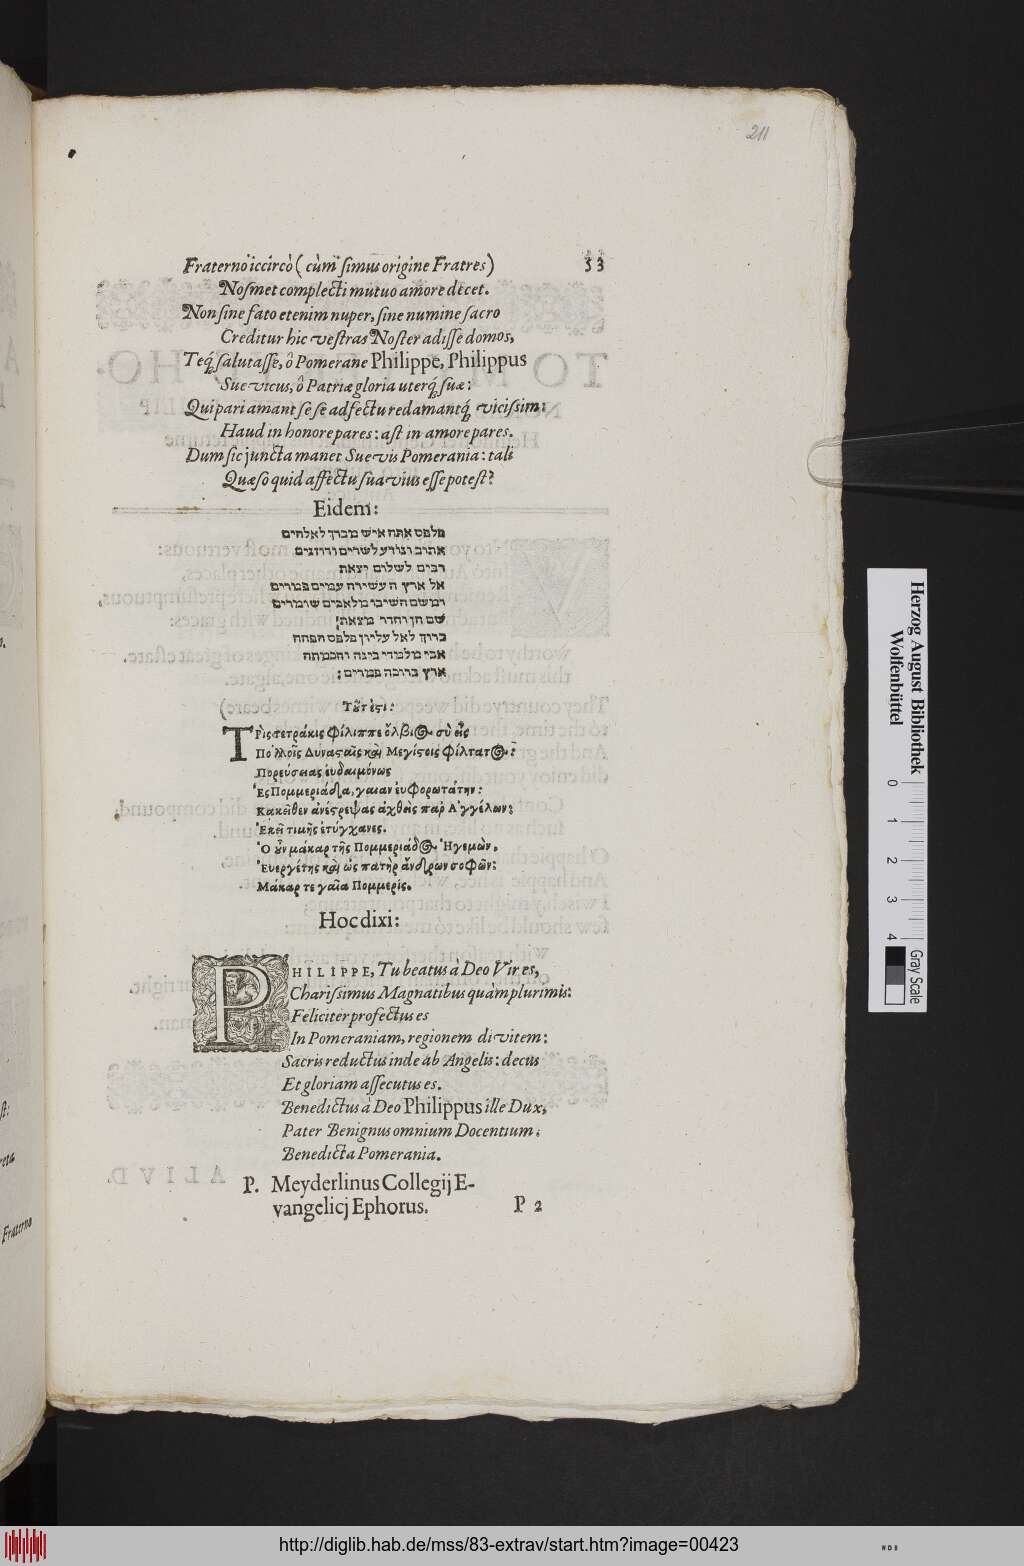 211
Fraternò iccircò (cùm simus origine Fratres) 53
Nosmet complecti mutuo amore decet.
Non sine fato etenim nuper, sine numine sacro
Creditur hic vestras Noster adisse domos,
Teq́ salutasse, ô Pomerane Philippe, Philippus
Suevicus, ô Patriæ gloria uterq́ suæ:
Qui pari amant se se adfectu redamantq́ vicissim:
Haud in honore pares: ast in amore pares.
Dum sic juncta manet Suevis Pomerania: tali
Quæso quid affectu suavius esse potest?
Eidem:
פלפס אתה איש מברך לאלהים
אהוב ונודע לשרים ורוזנים
רבים לשלום יצאת
אל ארץ העשירה עמים פמרים
ומשם השיבו מלאכים שומרים
שם חן והדר מצאת:
ברוך לאל עליון פלפס הפחה
אבי מלמדי בינה וחכמתה
ארץ ברוכה פמרים:
Τοῦτ' ἐςι:
Τρὶς τετράκις Φίλιππε ὄλβιος σὺ εἶς
Πολλοῖς Δυναςαῖς καὶ Μεγίςοις φίλτατος:
Πορεύσειας ἐυδαιμόνως
Ἐς Πομμεριάδα, γαιαν ἐυφορωτάτην:
Κακεῖθεν ἀνέςρεψας ἀχθεὶς παρ' Ἀγγέλων:
Ἐκεῖ τιμῆς ἐτύγχανες.
Ὁ οὖν μάκαρ τῆς Πομμεριάδος Ἡγεμὼν,
Ἐυεργέτης καὶ ὡς πατὴρ ἄνδρων σοφῶν:
Μάκαρ τε γαῖα Πομμερίς.
Hoc dixi:
PHILIPPE, Tu beatus à Deo Vir es,
Charissimus Magnatibus quàm plurimis:
Feliciter profectus es
In Pomeraniam, regionem divitem:
Sacris reductus inde ab Angelis: decus
Et gloriam assecutus es.
Benedictus à Deo Philippus ille Dux,
Pater Benignus omnium Docentium:
Benedicta Pomerania.
P. Meyderlinus Collegij E-
vangelicj Ephorus. P 2
Fraterno
Herzog August Bibliothek
Wolfenbüttel
0 1 2 3 4
Gray Scale
http://diglib.hab.de/mss/83-extrav/start.htm?image=00423